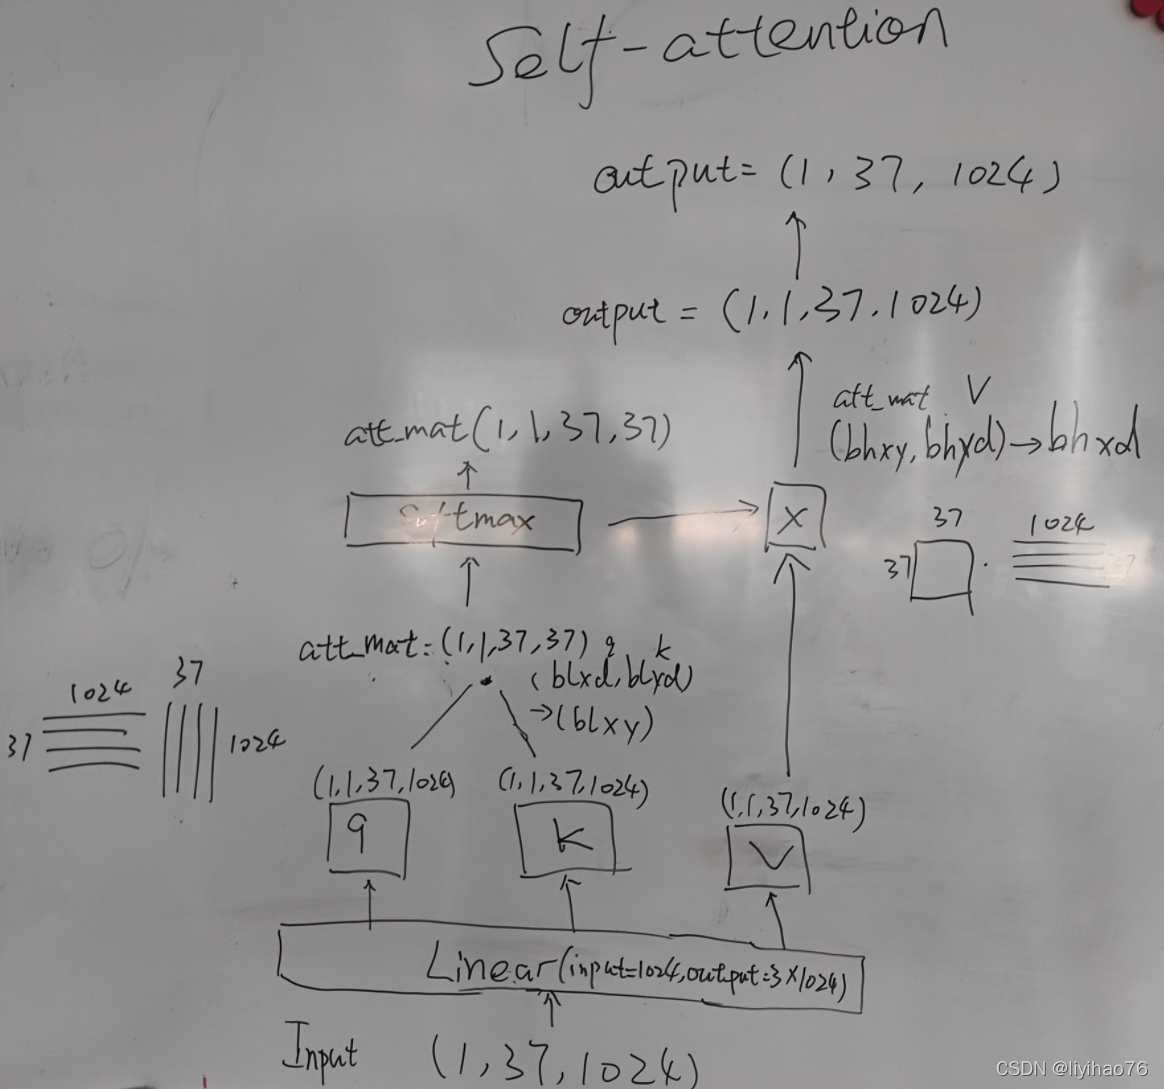 Self-attention
output= (1, 37, 1024)
output = (1,1,37,1024)
att_mat V
(bhxy, bhyd)→bhxd
att_mat(1,1,37,37)
Softmax
x
37
1024
37
.
att_mat=(1,1,37,37) q k
(blxd, blyd)
→(blxy)
37
1024
37
1024
(1,1,37,1024)
(1,1,37,1024)
(1,1,37,1024)
q
k
V
Linear(input=1024,output=3×1024)
Input (1,37,1024)
CSDN @liyihao76